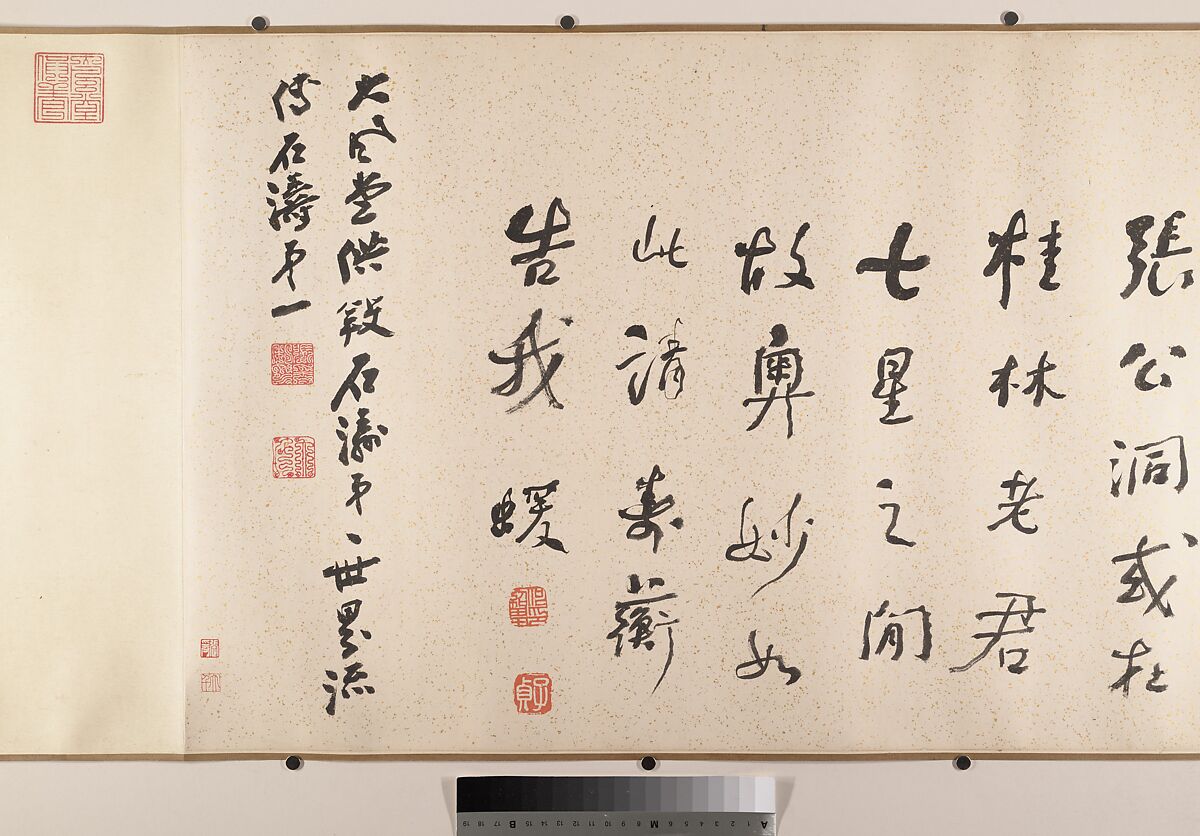 張公洞或在
桂林老君
七星之間
故奧妙如
此請壽蘅
告我 蝯
子貞
大風堂供養石濤弟一世界流
傳石濤弟一
A 1 2 3 4 5 6 7 8 M 9 10 11 12 13 14 15 B 16 17 18 19